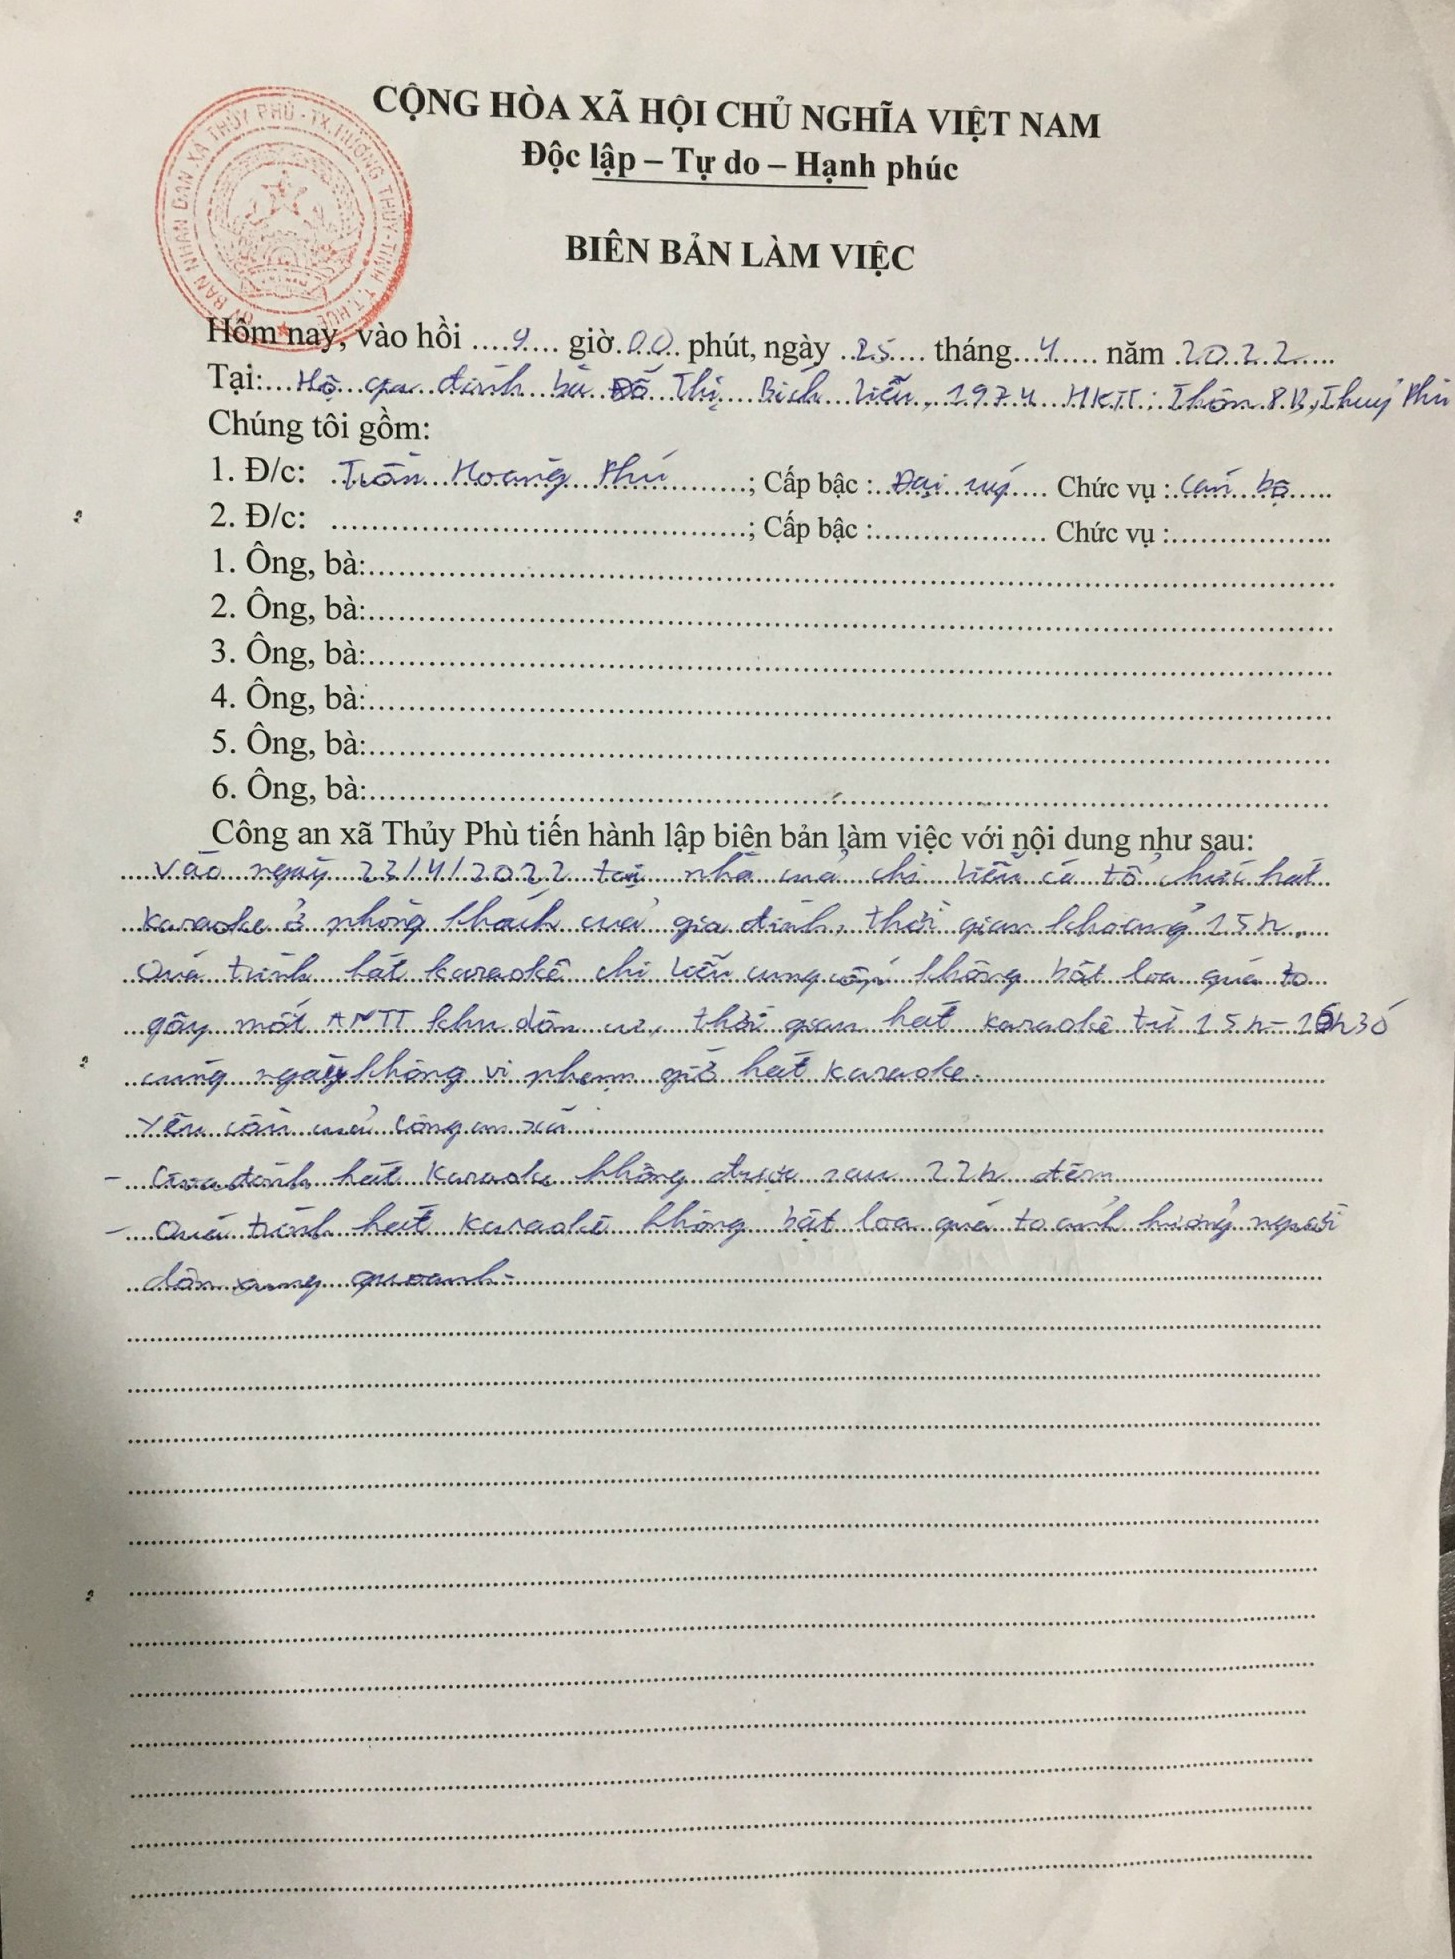 CỘNG HÒA XÃ HỘI CHỦ NGHĨA VIỆT NAM
Độc lập – Tự do – Hạnh phúc
ỦY BAN NHÂN DÂN XÃ THỦY PHÙ - TX.HƯƠNG THỦY - TỈNH T.T.HUẾ
BIÊN BẢN LÀM VIỆC
Hôm nay, vào hồi ....9.... giờ.00.. phút, ngày ..25.... tháng...4..... năm 2022.....
Tại:...Hộ gia đình bà Đỗ Thị Bích Liễu, 1974 HKTT: Thôn 8B, Thuỷ Phù
Chúng tôi gồm:
1. Đ/c: Trần Hoàng Phú; Cấp bậc : Đại uý Chức vụ : cán bộ
2. Đ/c: ; Cấp bậc : Chức vụ :
1. Ông, bà:
2. Ông, bà:
3. Ông, bà:
4. Ông, bà:
5. Ông, bà:
6. Ông, bà:
Công an xã Thủy Phù tiến hành lập biên bản làm việc với nội dung như sau:
Vào ngày 23/4/2022 tại nhà của chị Liễu có tổ chức hát
karaoke ở phòng khách của gia đình, thời gian khoảng 15h.
Quá trình hát karaokê chị Liễu cung cấp không bật loa quá to
gây mất ANTT khu dân cư, thời gian hát karaokê từ 15h-16h30
cùng ngày không vi phạm giờ hát karaoke.
Yêu cầu của Công an xã:
- Gia đình hát karaoke không được sau 22h đêm
- Quá trình hát karaokê không bật loa quá to ảnh hưởng người
dân xung quoanh.